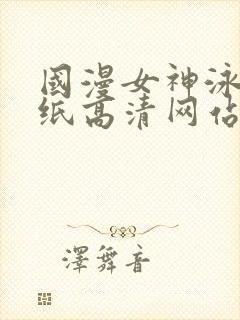 國漫女神泳
纸高清网站
澤舞音